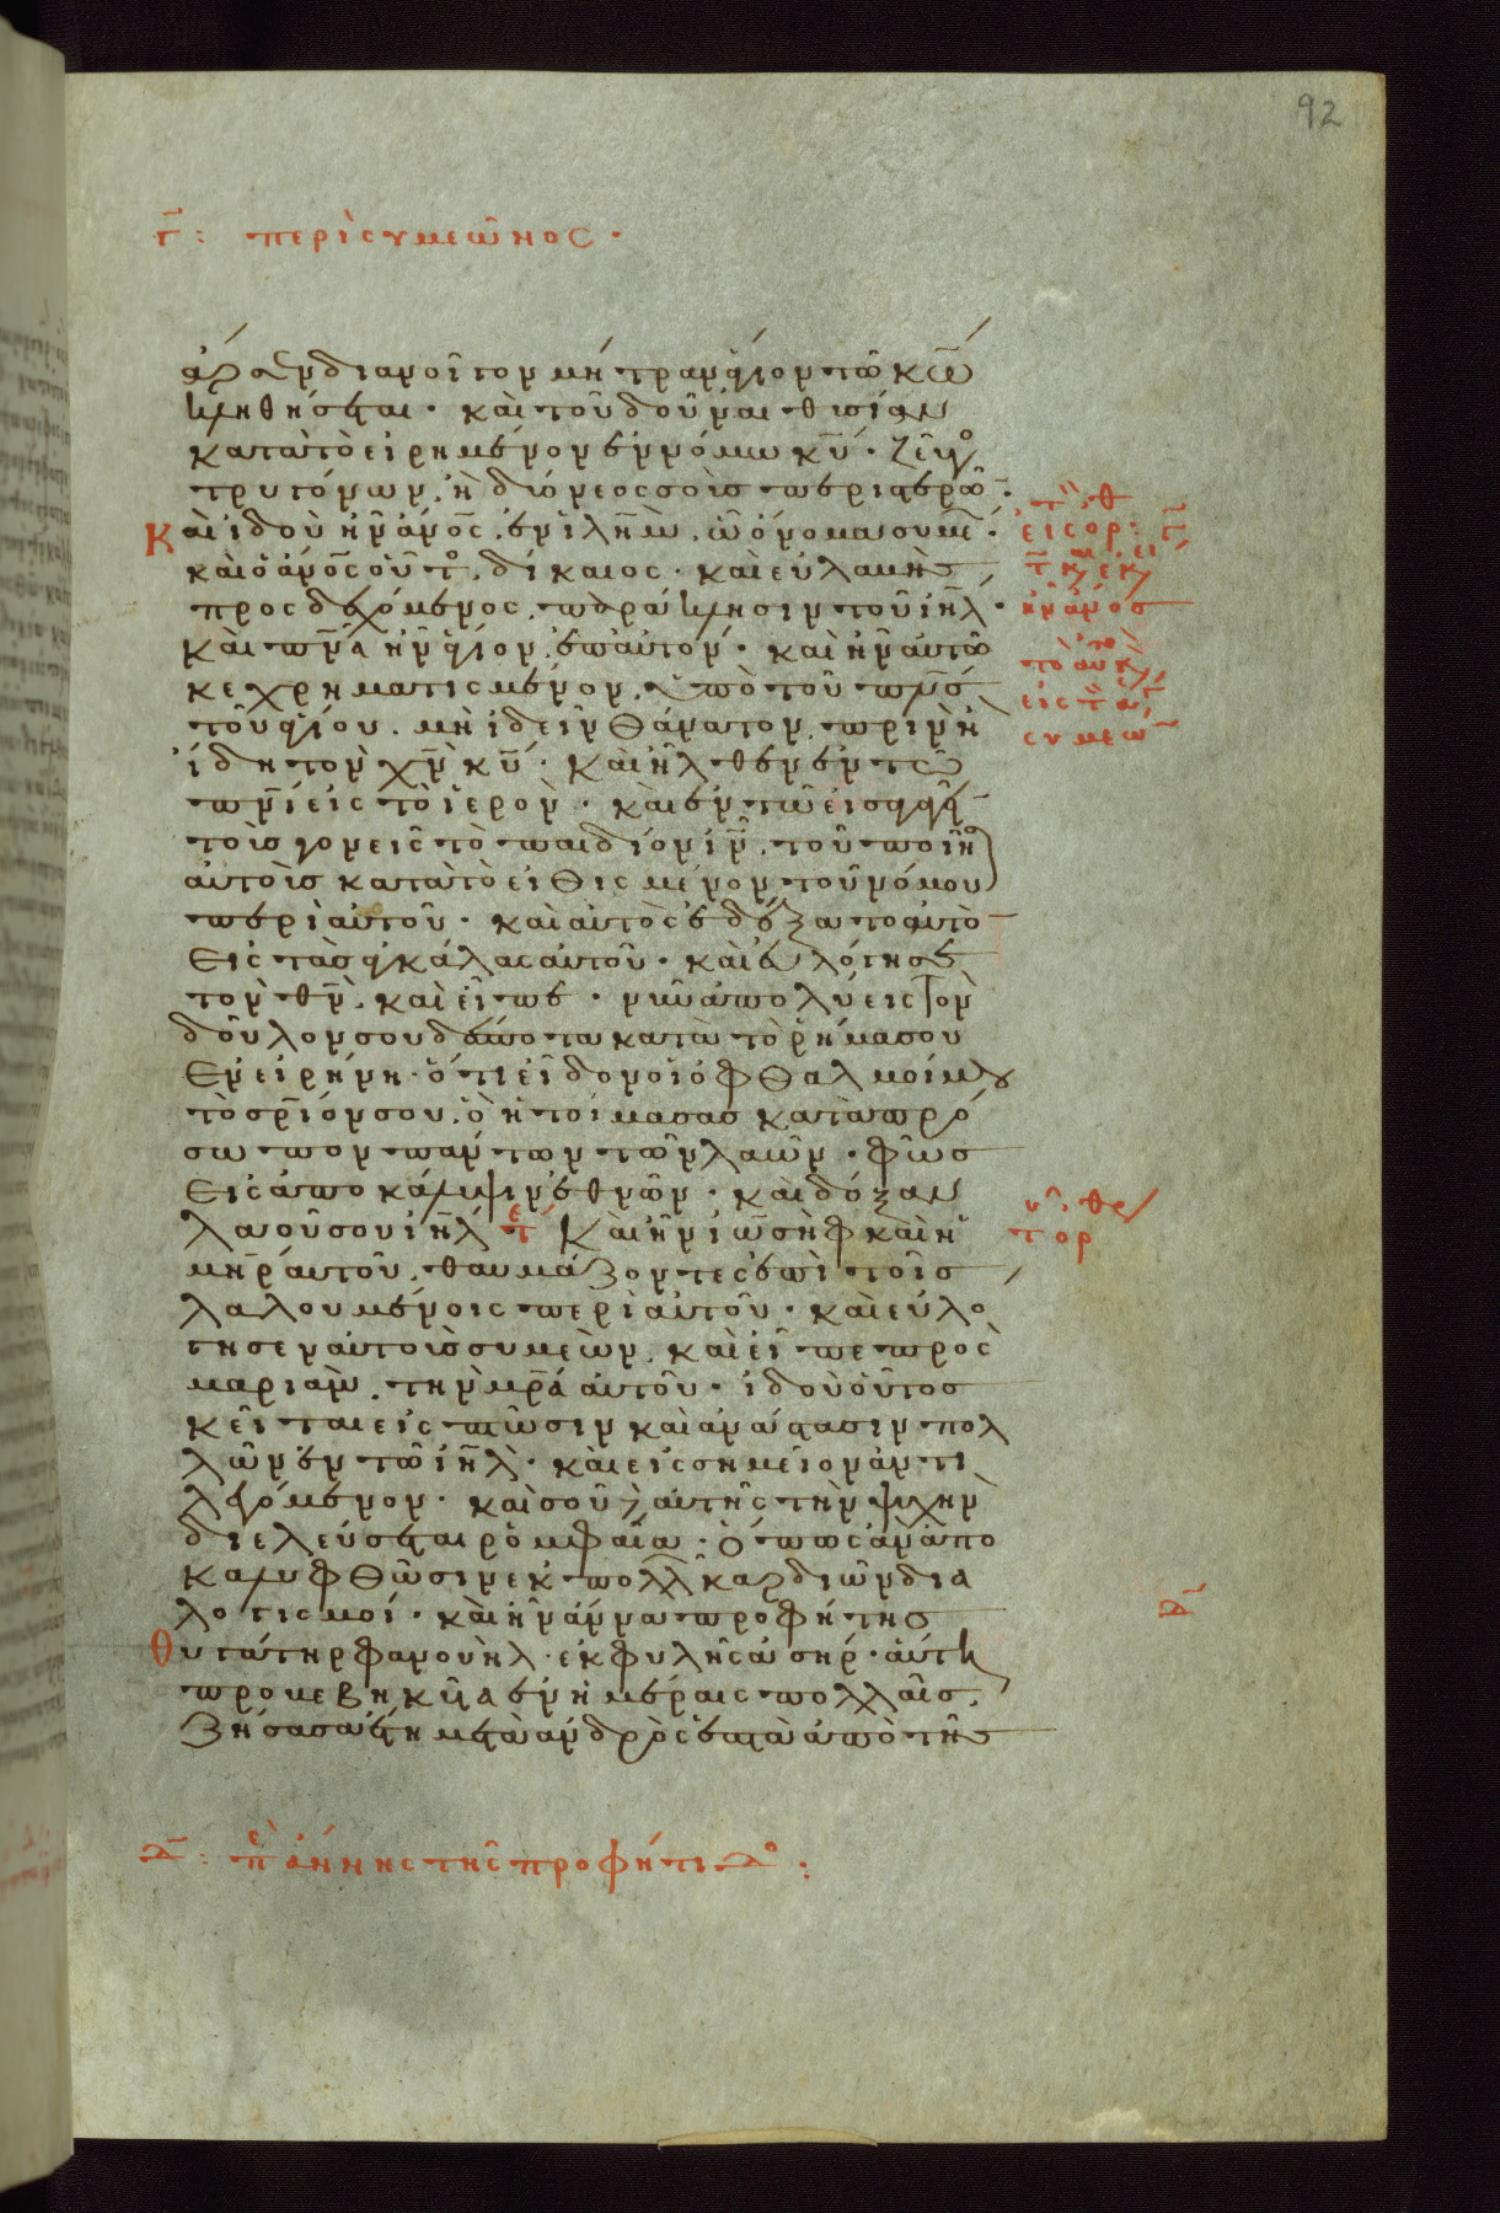 92
γ̄: περὶ συμεῶνος.
ἄρσεν διανοῖγον μήτραν ἅγιον τῶ κ̄ω̄
κληθήσεται. καὶ τοῦ δοῦναι θυσίαν
κατὰ τὸ εἰρημένον ἐν νόμω κ̄ῡ. ζεῦγο
τρυγόνων, ἢ δύο νεοσσοὺς περιστερῶ.
καὶ ἰδοὺ ἦν ἄνο̄ς ἐν ἱλη̄μ, ὧ ὄνομα συμε.
καὶ ὁ ἄνο̄ς οὗτο, δίκαιος. καὶ εὐλαβὴς
προσδεχόμενος, παράκλησιν τοῦ ἰη̄λ.
καὶ πν̄α ἦν ἅγιον ἐπ αὐτόν. καὶ ἦν αὐτῶ
κεχρηματισμένον, ὑπὸ τοῦ πν̄σ
τοῦ ἁγίου. μὴ ἰδεῖν θάνατον, πρινὴ
ἴδη τὸν χ̄ν κ̄υ. καὶ ἦλθεν ἐν τῶ
πν̄ι εἰς τὸ ἱερόν. καὶ ἐν τῶ εἰσαγαγεῖ
τοὺς γονεῖς τὸ παιδίον ῑν̄. τοῦ ποιῆσ
αὐτοὺς κατὰ τὸ εἰθισμένον τοῦ νόμου
περὶ αὐτοῦ. καὶ αὐτὸς ἐδέξατο αὐτὸ
εἰς τὰς ἀγκάλας αὐτοῦ. καὶ εὐλόγησε
τὸν θ̄ν, καὶ εἶπε. νῦν ἀπολύεις τὸν
δοῦλον σου δέσποτα κατὰ τὸ ῥῆμα σου
ἐν εἰρήνη. ὅτι εἶδον οἱ ὀφθαλμοί μου
τὸ σρ̄ιόν σου, ὃ ἡτοίμασας κατὰ πρό
σωπον πάντων τῶν λαῶν. φῶς
εἰς ἀποκάλυψιν ἐθνῶν. καὶ δόξαν
λαοῦ σου ἰη̄λ τε καὶ ἦν ἰωσὴφ καὶ ἡ
μη̄ρ αὐτοῦ, θαυμάζοντες ἐπὶ τοῖς
λαλουμένοις περὶ αὐτοῦ. καὶ εὐλό
γησεν αὐτοὺς συμεὼν, καὶ εἶπε πρὸς
μαριὰμ, τὴν μρ̄α αὐτοῦ. ἰδοὺ οὗτος
κεῖται εἰς πτῶσιν καὶ ἀνάστασιν πολ
λῶν ἐν τῶ ἰη̄λ. καὶ εἰς σημεῖον ἀντι
λεγόμενον. καὶ σοῦ δὲ αὐτῆς τὴν ψυχὴν
διελεύσεται ρομφαία. ὅπως ἂν ἀπο
καλυφθῶσιν ἐκ πολλ καρδιῶν δια
λογισμοί. καὶ ἦν ἄννα προφῆτης
θυγάτηρ φανουὴλ. ἐκ φυλῆς ἀσήρ. αὕτη
προβεβηκυῖα ἐν ἡμέραις πολλαῖς,
ζήσασα ἔτη μετὰ ἀνδρὸς ἑπτὰ ἀπὸ τῆς
εἰς ἑορ:
ἦν ἄνος
συμεώ
δ̄
δ̄: πε ἄννης τῆς προφήτιδο: